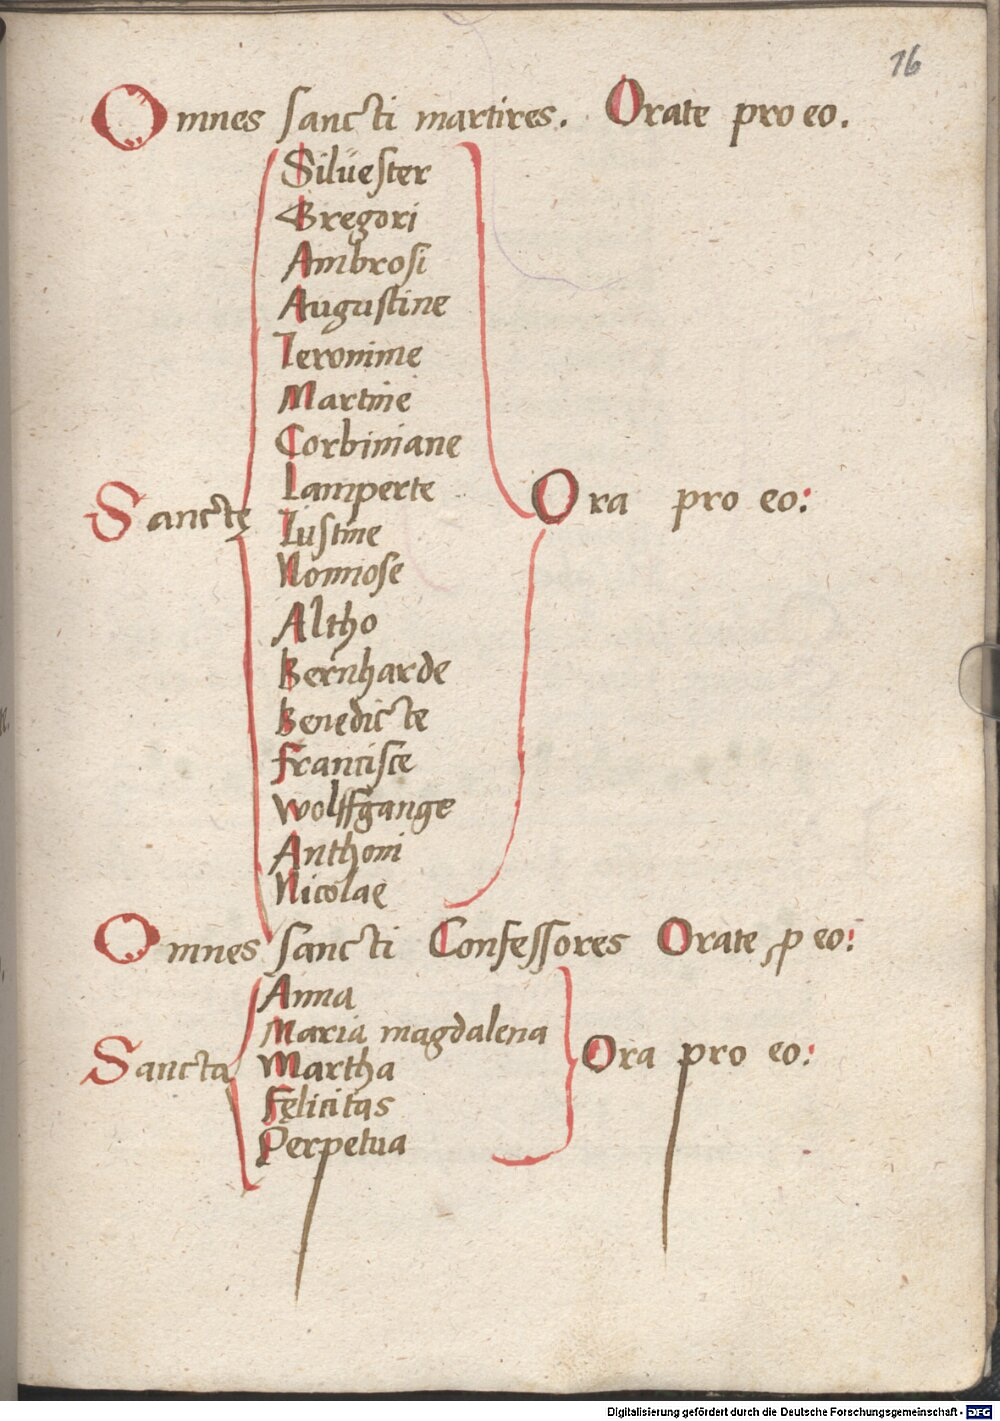 16
Omnes sancti martires. Orate pro eo.
Siluester
Gregori
Ambrosi
Augustine
Ieronime
Martine
Corbiniane
Lamperte
Sanctę Ora pro eo:
Iustine
Nonnose
Altho
Bernharde
Benedicte
Francisce
Wolffgange
Anthoni
Nicolae
Omnes sancti Confessores Orate ꝓ eo:
Anna
Maria magdalena
Sancta Martha Ora pro eo:
Fęlicitas
Perpetua
Digitalisierung gefördert durch die Deutsche Forschungsgemeinschaft - DFG